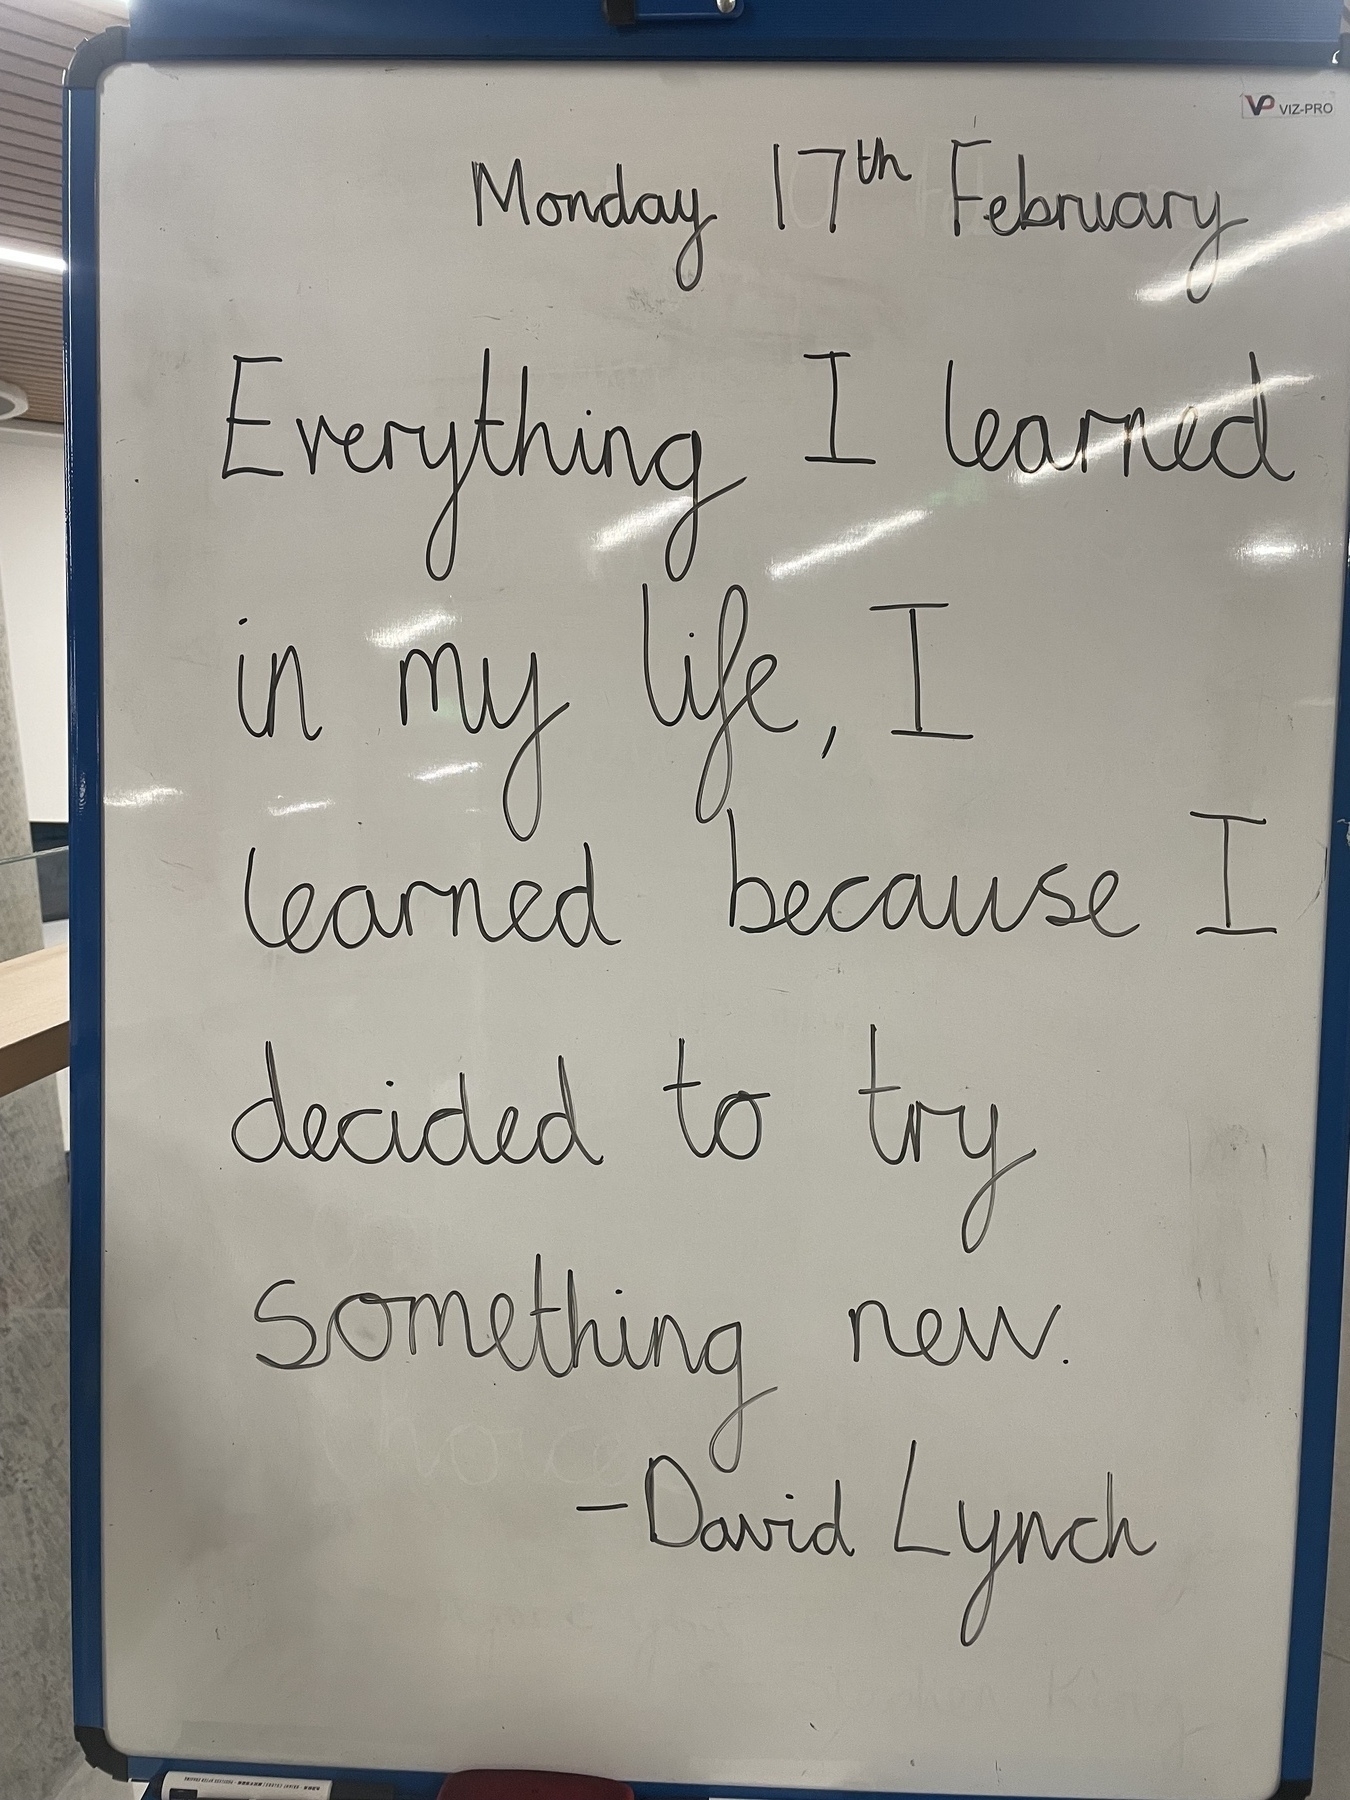 VP VIZ-PRO
Monday 17th February
Everything I learned
in my life, I
learned because I
decided to try
something new.
-David Lynch